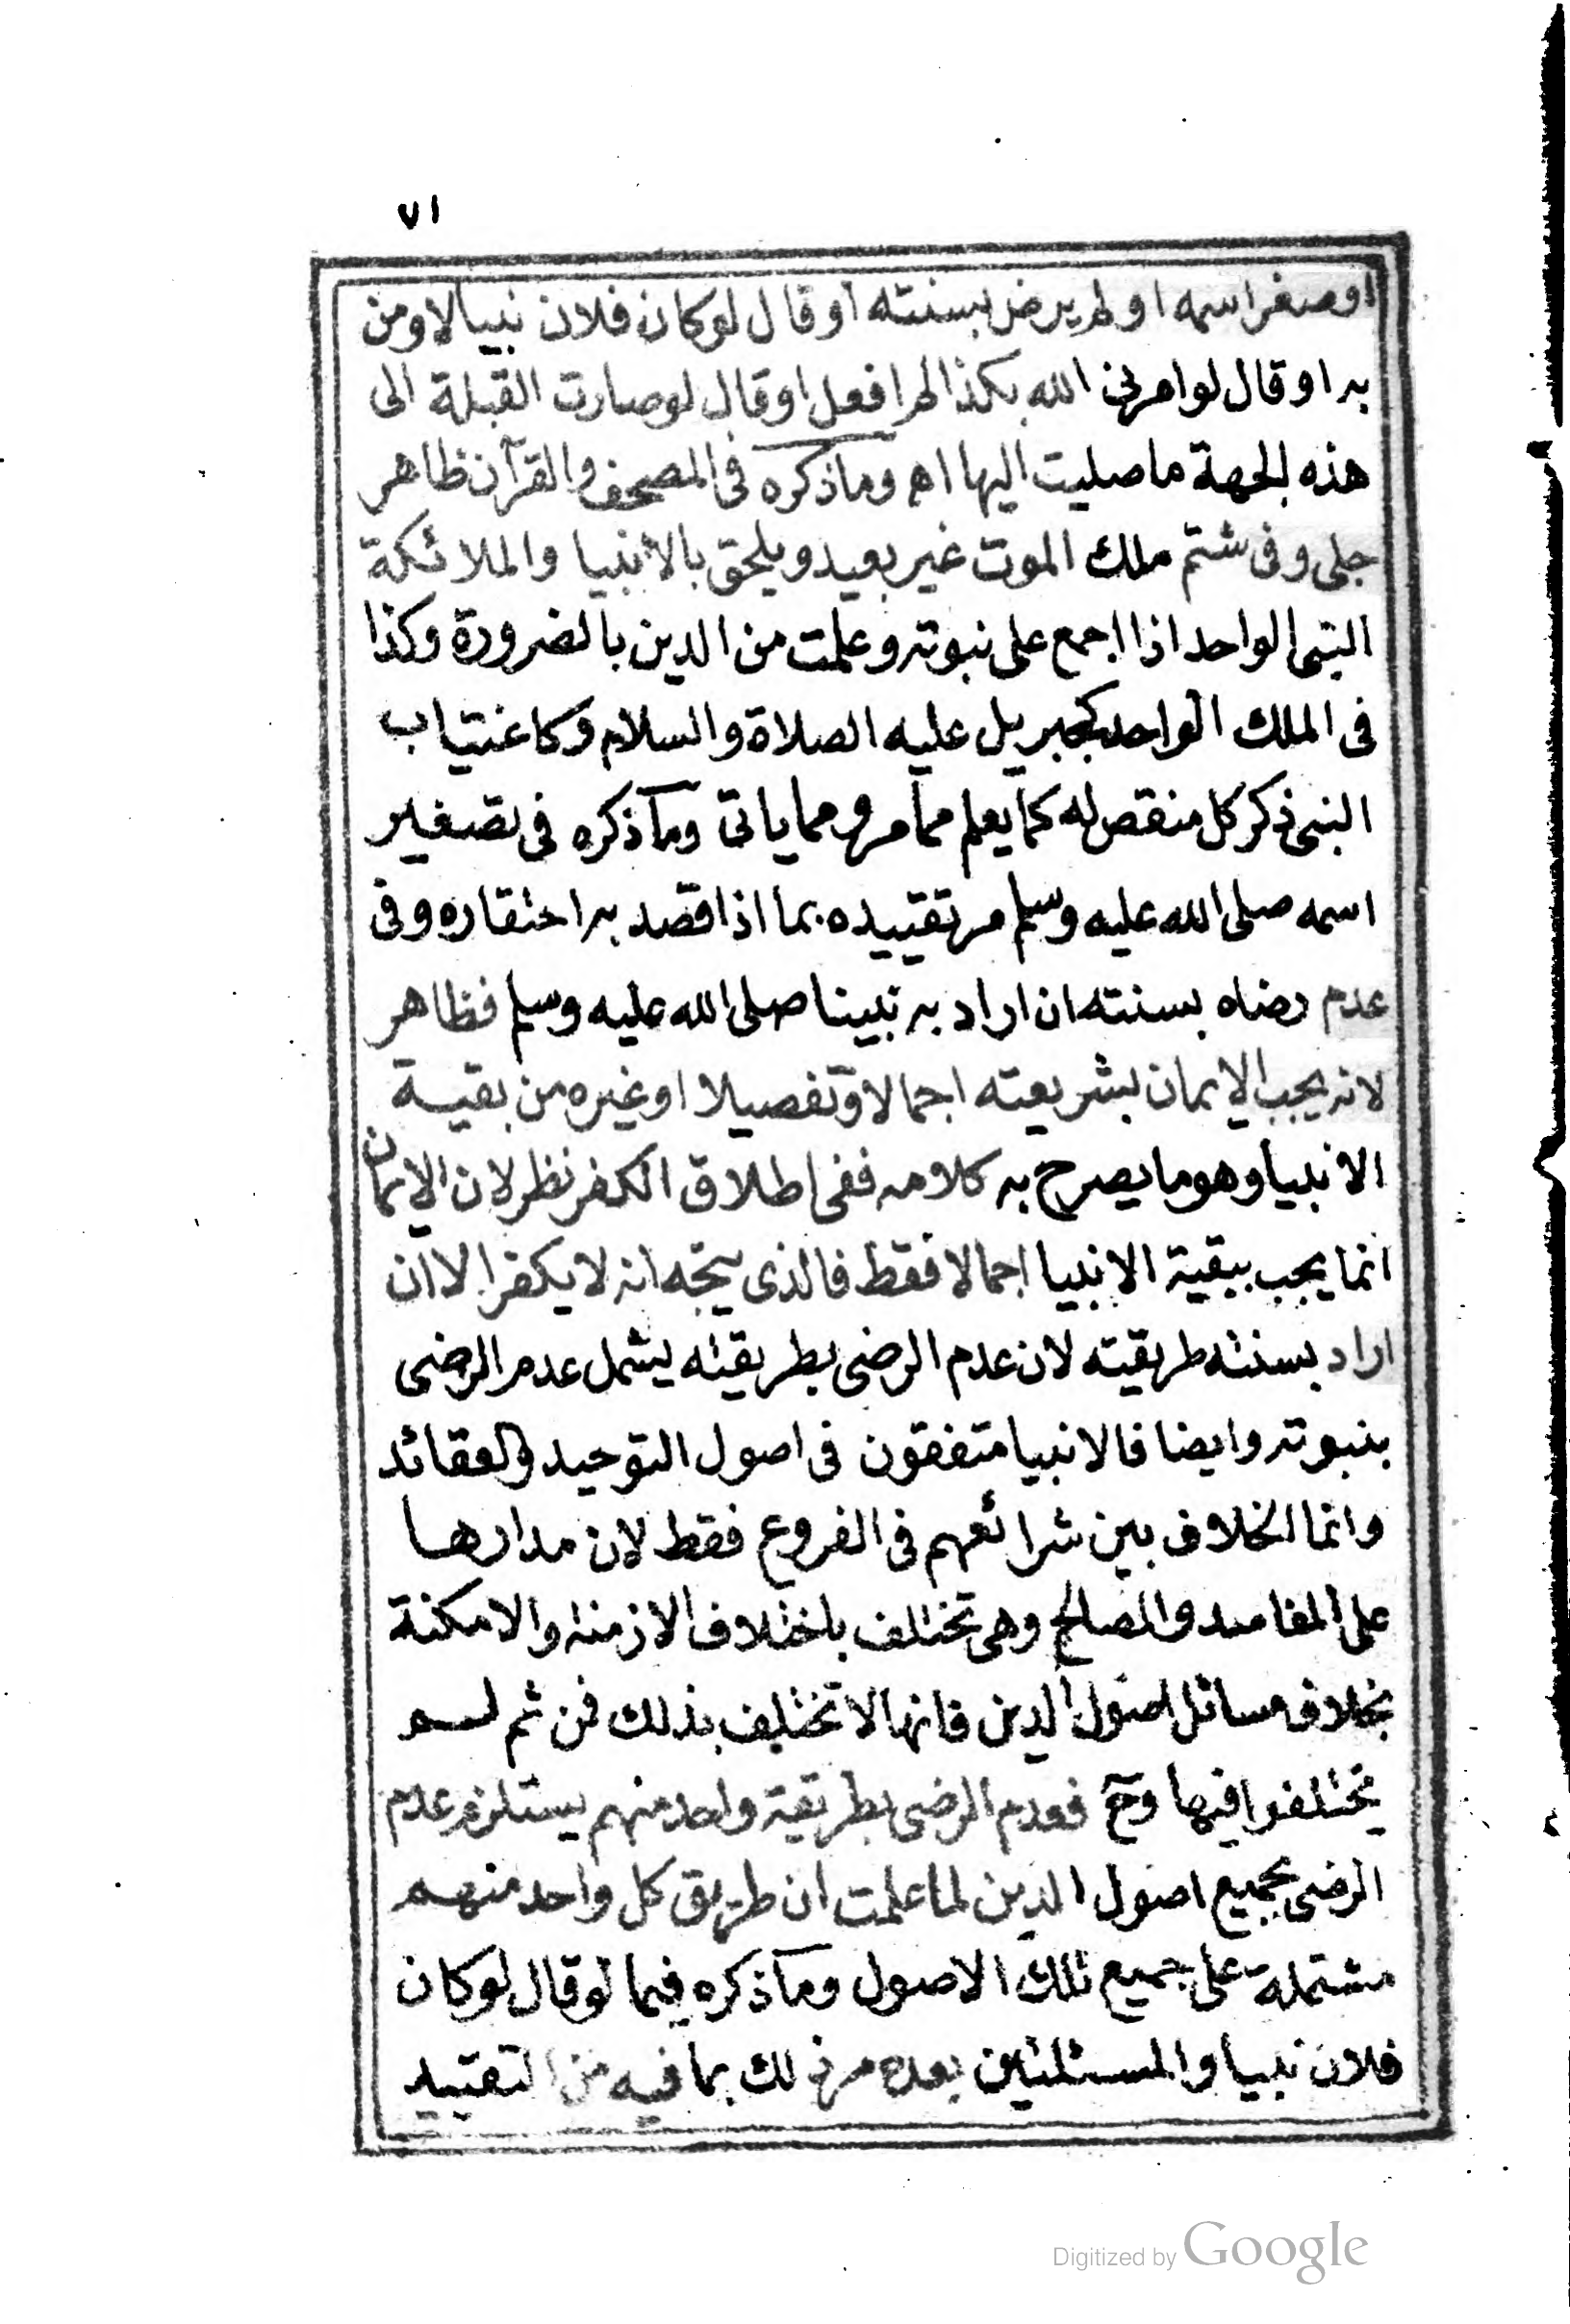 ٧١
او صغر اسمه او لم يرض بسنته او قال لو كان فلان نبيا لا ومن
به او قال لو امرني الله بكذا لم افعل او قال لو صارت القبلة الى
هذه الجهة ما صليت اليها اه وما ذكره في المصحف والقرآن ظاهر
جلي وفي شتم ملك الموت غير بعيد ويلحق بالانبيا والملائكة
النبى الواحد اذا اجمع على نبوته وعلمت من الدين بالضرورة وكذا
في الملك الواحد كجبريل عليه الصلاة والسلام وكاغتياب
النبى ذكر كل منقص له كما يعلم مما مر ومما ياتى وما ذكره في تصغير
اسمه صلى الله عليه وسلم مر تقييده بما اذا قصد به احتقاره وفى
عدم رضاه بسنته ان اراد به نبينا صلى الله عليه وسلم فظاهر
لانه يجب الايمان بشريعته اجمالا وتفصيلا او غيره من بقية
الانبيا وهو ما يصرح به كلامه ففي اطلاق الكفر نظر لان الايمان
انما يجب ببقية الانبيا اجمالا فقط فالذى يتجه انه لا يكفر الا ان
اراد بسنته طريقته لان عدم الرضى بطريقته يشمل عدم الرضى
بنبوته وايضا فالانبيا متفقون في اصول التوحيد والعقائد
وانما الخلاف بين شرائعهم في الفروع فقط لان مدارها
على المفاسد والمصالح وهى تختلف باختلاف الازمنة والامكنة
بخلاف مسائل اصول الدين فانها لا تختلف بذلك فمن ثم لم
يختلفوا فيها وح فعدم الرضى بطريقة واحد منهم يستلزم عدم
الرضى بجميع اصول الدين لما علمت ان طريق كل واحد منهم
مشتملة على جميع تلك الاصول وما ذكره فيما لو قال لو كان
فلان نبيا والمسئلتين بعده مر ذلك بما فيه من التقييد
Digitized by Google